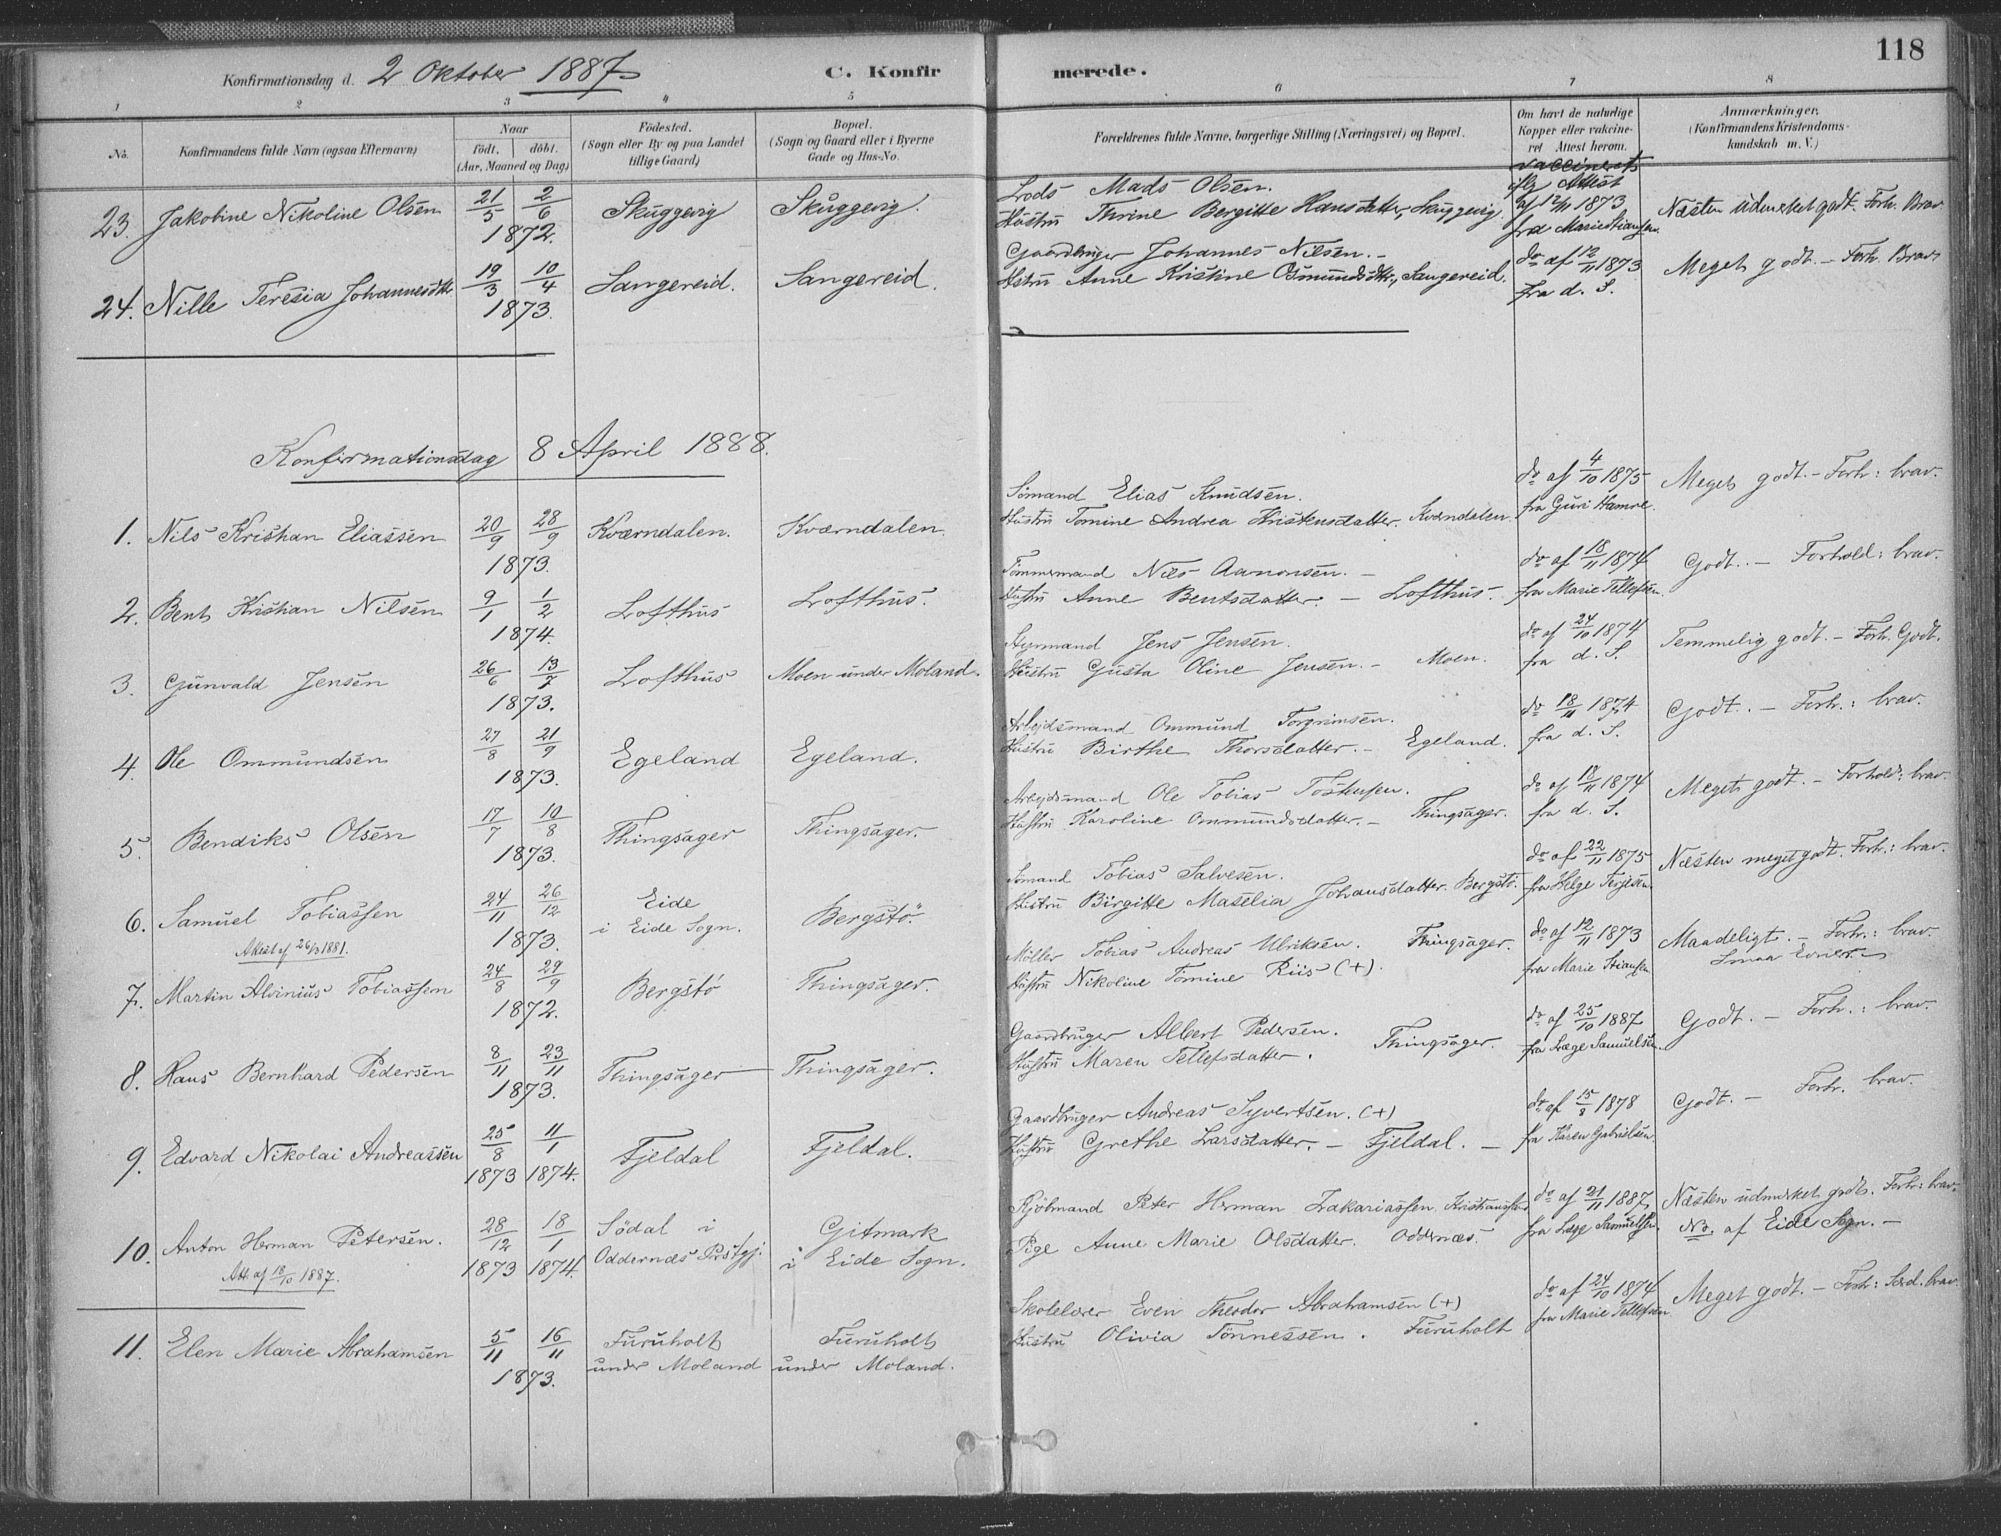 118
Konfirmationsdag d. 2 Oktober 1887
C. Konfirmerede.
1 2 3 4 5 6 7 8
No.
Konfirmandens fulde Navn (ogsaa Efternavn)
Naar
født. døbt.
(Aar, Maaned og Dag)
Födested.
(Sogn eller By og paa Landet
tillige Gaard)
Bopæl.
(Sogn og Gaard eller i Byerne
Gade og Hus-No.
Forældrenes fulde Navne, borgerlige Stilling (Næringsvei) og Bopæl.
Om havt de naturlige
Kopper eller vakcine-
ret Attest herom.
Anmærkninger.
(Konfirmandens Kristendoms-
kundskab m. V.)
23. Jakobine Nikoline Olsen 21/5 2/6 1872. Skuggevig Skuggevig.
Lods Mads Olsen.
Hustru Thrine Bergitte Hansdatter, Skuggevig.
vaccineret
iflg Attest
af 12/11 1873
fra Marie Stiansen.
Næsten udmerket godt. Forh. Brav
24. Nille Teresia Johannesdtr 19/3 10/4 1873. Sangereid. Sangereid.
Gaardbruger Johannes Nilsen. -
Hstru Anne Kristine Osmundsdtr., Sangereid.
do af 12/11 1873
fra d. S.
Meget godt. - Forh. Brav
Konfirmationsdag 8 April 1888.
1. Nils Kristian Eliassen 20/9 28/9 1873. Kværndalen. Kværndalen.
Sømand Elias Knudsen.
Hustru Tomine Andrea Kristensdatter. Kværndalen.
do af 4/10 1875
fra Guri Hamre.
Meget godt. - Forh: brav.
2. Bent Kristian Nilsen 9/1 1/2 1874. Lofthus Lofthus.
Tømmermand Nils Aanonsen. -
Hustru Anne Bentsdatter. - Lofthus.
do af 18/11 1874
fra Marie Tellefsen.
Godt. - Forhold: brav.
3. Gunvald Jensen 26/6 13/7 1873. Lofthus Moen under Moland.
Styrmand Jens Jensen.
Hustru Gusta Oline Jensen. - Moen.
do af 24/10 1874
fra d. S.
Temmelig godt. - Forh. Godt.
4. Ole Ommundsen 27/8 21/9 1873. Egeland Egeland.
Arbejdsmand Ommund Torgrimsen.
Hustru Birthe Thorsdatter. - Egeland.
do 18/11 1874
fra d. S.
Godt. - Forh.: brav.
5. Bendiks Olsen 17/7 10/8 1873. Thingsager Thingsager.
Arbejdsmand Ole Tobias
Hustru Karoline Ommundsdatter. - Thingsager.
do af 18/11 1874
fra d. S.
Meget godt. - Forhold: brav.
6. Samuel Tobiassen 24/11 26/12 1873. Eide
i Eide Sogn. Bergstø
Attest af 26/3 1881.
Sømand Tobias Salvesen.
Hustru Birgitte Maselia Johansdatter. Bergstø.
do af 22/11 1875
fra Helge Terjesen.
Næsten meget godt. Forh.: brav.
7. Martin Alvinius Tobiassen 24/8 29/9 1872. Bergstø Thingsager.
Møller Tobias Andreas Ulriksen. Thingsager.
Hustru Nikoline Tomine Riis (+).
do af 12/11 1873
fra Marie Stiansen
Maadeligt. - Forh.: brav.
Smaa Evner.
8. Hans Bernhard Pedersen 8/11 23/11 1873. Thingsager Thingsager.
Gaardbruger Albert Pedersen.
Hustru Maren Tellefsdatter. Thingsager.
do af 25/10 1887
fra Læge Samuelsen.
Godt. - Forh.: brav.
9. Edvard Nikolai Andreassen 25/8 1873 11/1 1874. Fjeldal Fjeldal.
Gaardbruger Andreas Syvertsen. (+)
Hustru Grethe Larsdatter. - Fjeldal. -
do af 15/8 1878
fra Karen Gabrielsen.
Godt. - Forh. brav.
10. Anton Herman Petersen. 28/12 1873 18/1 1874. Södal i
Oddernæs Prstgj: Gitmark
i Eide Sogn.
Att. af 18/10 1887.
Kjøbmand Peter Herman Zakariassen,
Pige Anne Marie Olsdatter. Oddernæs.
do af 21/11 1887
fra Læge Samuelsen
Næsten udmerket godt. Forh: brav.
NB. af Eide Sogn. -
11. Elen Marie Abrahamsen 5/11 16/11 1873. Furuholt
under Moland Furuholt
under Moland.
Skolelærer Even Theodor Abrahamsen (+)
Hustru Olivia Tønnessen. Furuholt
do af 24/10 1874
fra Marie Tellefsen
Meget godt. - Forh: Særd. brav